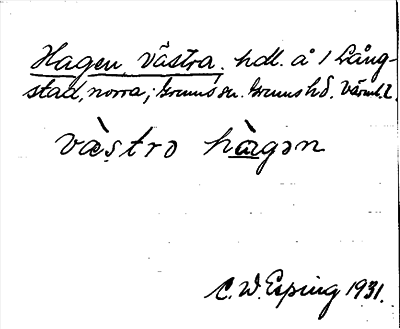 Hagen, västra, hdl. å 1 Lång-
stad, norra, i Grums sn. Grums hd. Värml. l.
vä̀stra hàgən
C. W. Esping 1931.